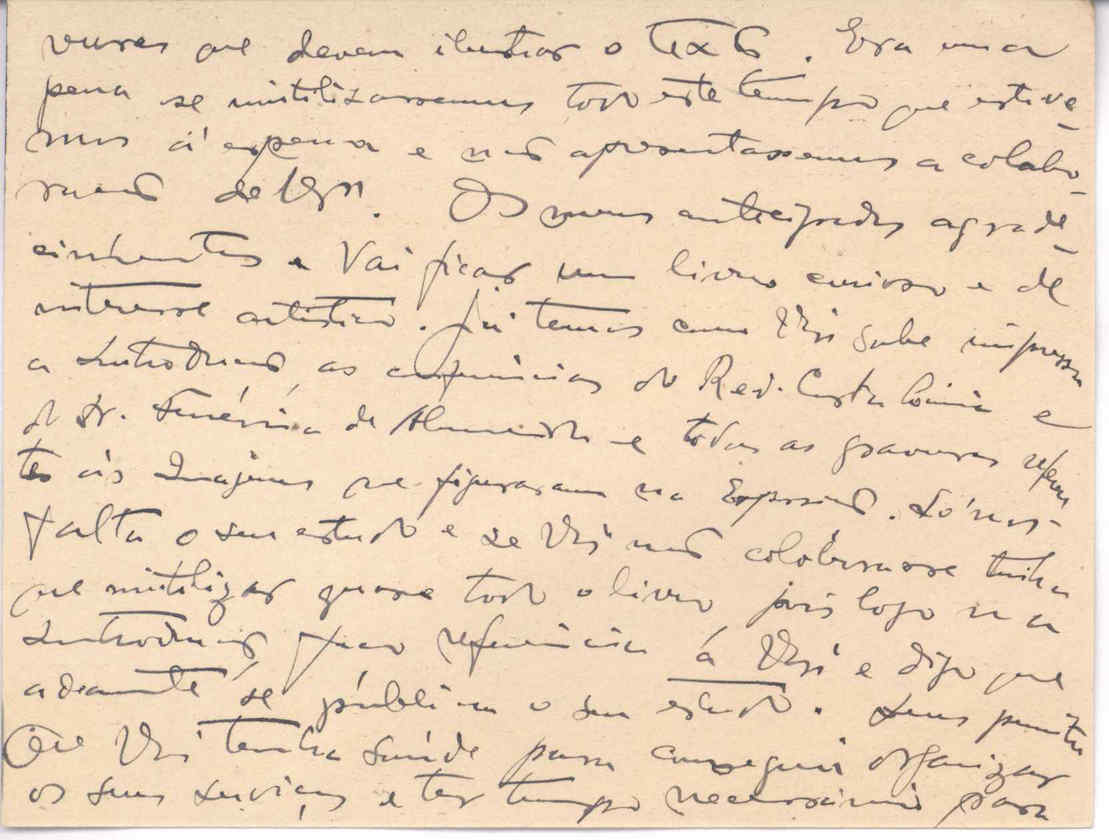 vuras que devem ilustrar o texto. Era uma
pena se inutilizassemos todo este tempo que estive-
mos á espera e não apresentassemos a colabo-
ração de V. Os meus anticipados agrade-
cimentos e Vai ficar um livro curioso e de
interesse artistico. Já temos como sabe impressa
a Introdução, as conferências do Rev. e
do Sr. de Almeida e todas as gravuras referen
tes ás Imagens que figuraram na Exposição. Só nos
falta o seu estudo e se não colaborasse tinha
que inutilizar quase todo o livro pois logo na
Introdução faço referência á e digo que
adeante se publica o seu estudo.
Que tenha saúde para conseguir organizar
os seus serviços e ter tempo necessário para